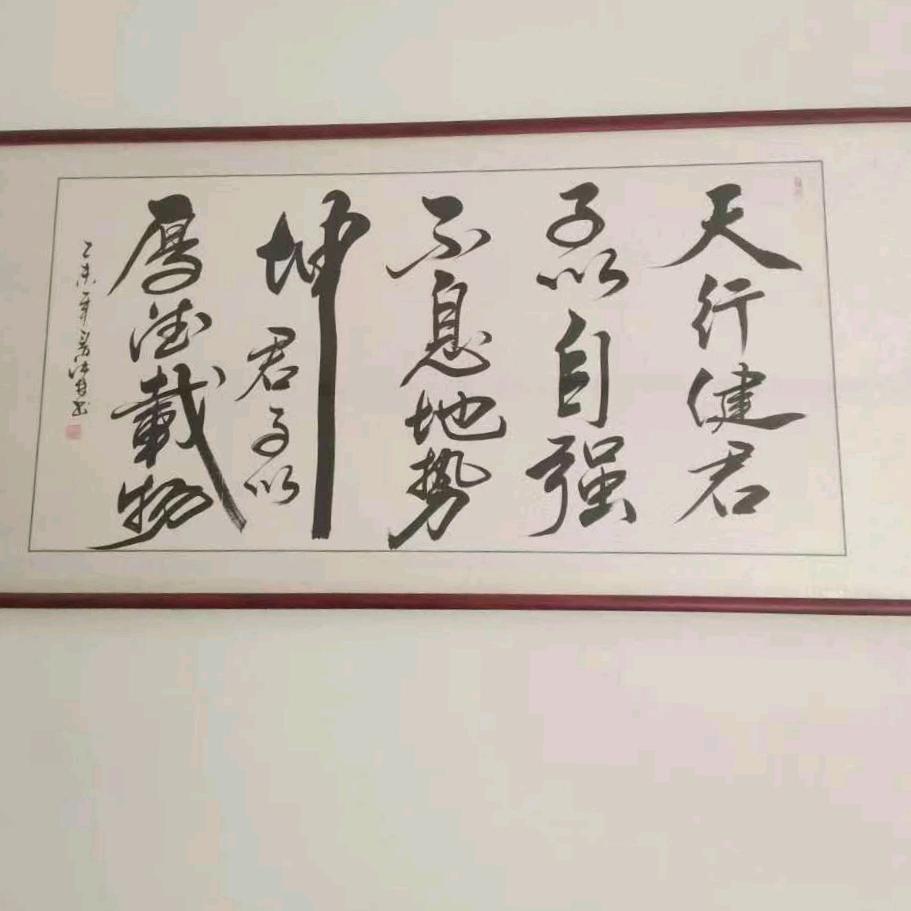 天行健君
子以自强
不息地势
坤君子以
厚德载物
乙未年